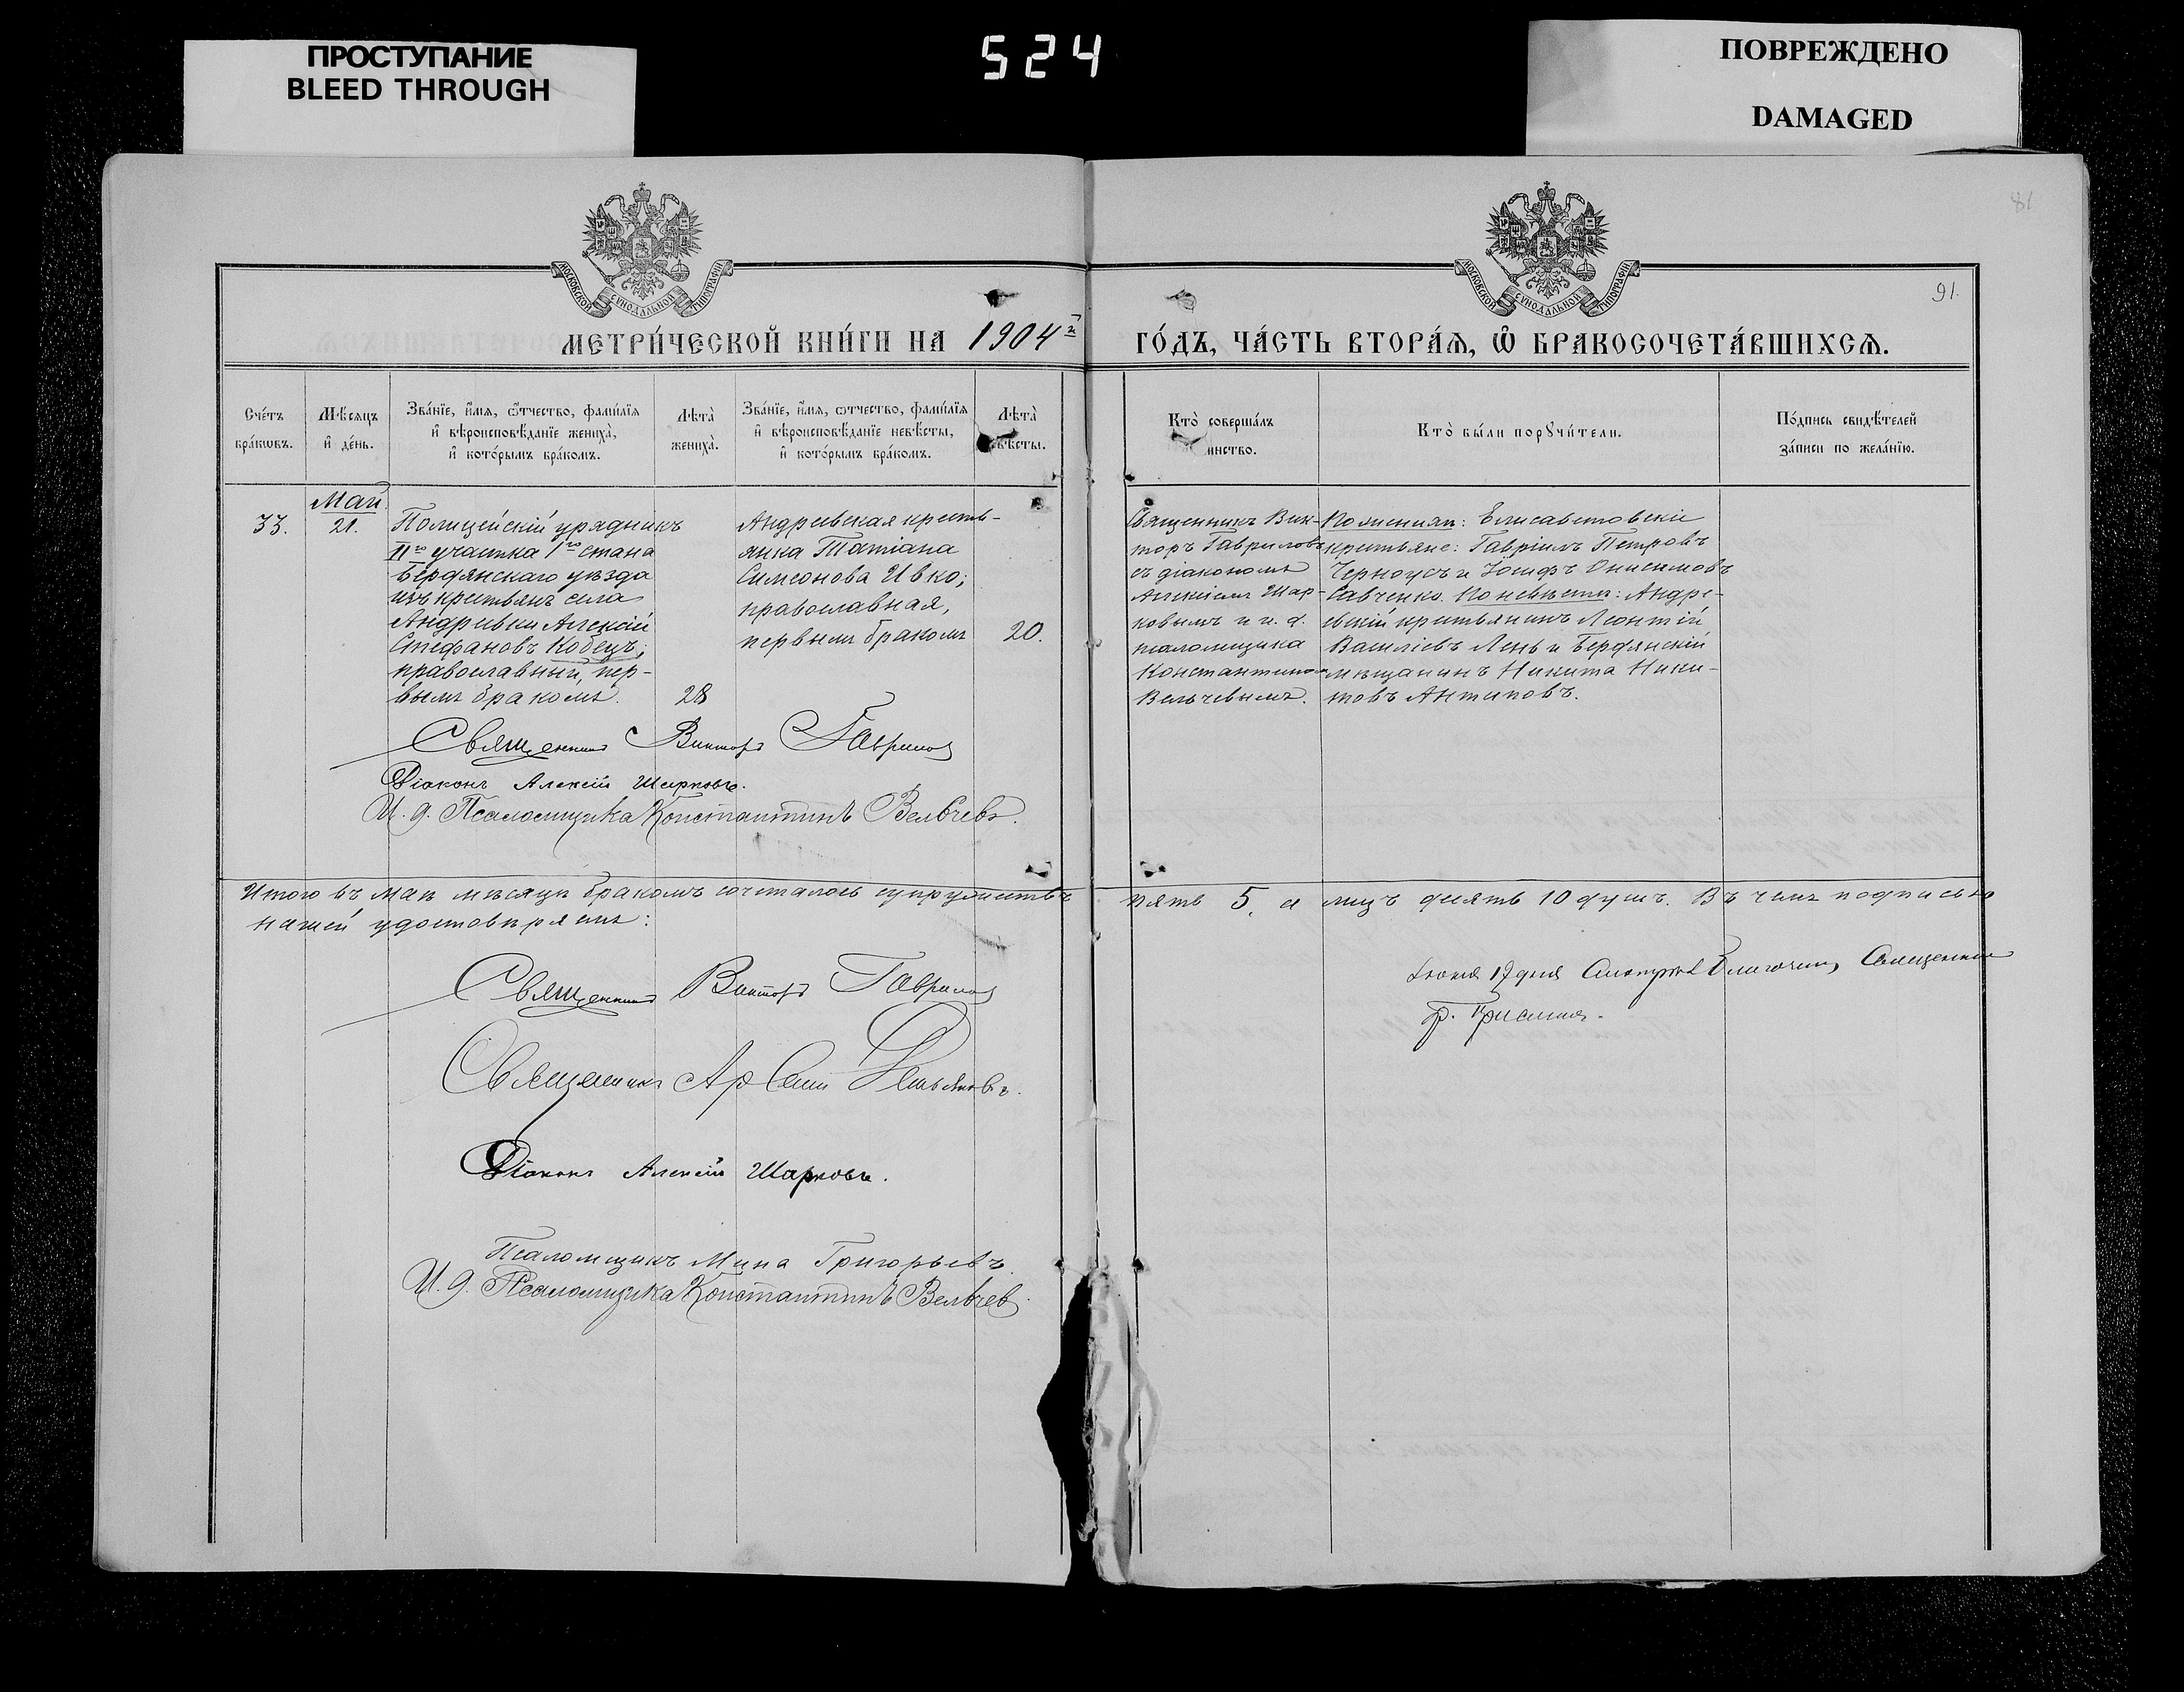 ПРОСТУПАНИЕ
BLEED THROUGH
524
ПОВРЕЖДЕНО
DAMAGED
81
91.
МОСКОВСКОЙ СѴНОДАЛЬНОЙ ТИПОГРАФІИ
МОСКОВСКОЙ СѴНОДАЛЬНОЙ ТИПОГРАФІИ
МЕТРИ́ЧЕСКОЙ КНИ́ГИ НА 1904й
ГО́ДЪ, ЧА́СТЬ ВТОРА́Ѧ, Ѡ҆ БРАКОСОЧЕТА́ВШИХСѦ.
Сче́тъ
бра́кѡвъ.
Мѣ́сяцъ
и҆ де́нь.
Зва́нїе, и҆́мѧ, ѻ҆́тчество, фами́лїѧ
и҆ вѣроисповѣ́данїе жениха̀,
и҆ кото́рымъ бра́комъ.
Лѣта̀
жениха̀.
Зва́нїе, и҆́мѧ, ѻ҆́тчество, фами́лїѧ
и҆ вѣроисповѣ́данїе невѣ́сты,
и҆ кото́рымъ бра́комъ.
Лѣта̀
вѣ́сты.
Кто̀ соверша́лъ
инство.
Кто̀ бы́ли порꙋчи́тели.
По́дпись свидѣ́телей
за́писи по жела́нїю.
Май.
33.
21.
Полицейскій урядникъ
IIго участка 1го стана
Бердянскаго уѣзда
изъ крестьянъ села
Андреевки Алексій
Стефановъ Кобецъ,
православный, пер-
вымъ бракомъ.
28
Андреевская кресть-
янка Татіана
Симеонова Ивко;
православная,
первымъ бракомъ
20.
Священникъ Вик-
торъ Гавриловъ
съ діакономъ
Алексіемъ Шар-
ковымъ и и. д.
псаломщика
Константином
Вельчевымъ.
По женихѣ: Елисаветовскіе
крестьяне: Гавріилъ Петровъ
Черноусъ и Іосифъ Онисимовъ
Савченко. По невѣстѣ: Андре-
евскій крестьянинъ Леонтій
Василіевъ Лень и Бердянскій
мѣщанинъ Никита Ники-
товъ Антиповъ.
Священникъ Викторъ Гаврилов
Діаконъ Алексій Шарковъ.
И. д. Псаломщика Константинъ Вельчевъ.
Итого въ маѣ мѣсяцѣ бракомъ сочеталось супружествъ пять 5, а лицъ десять 10 душъ. Въ чемъ подписью
нашей удостовѣряемъ:
Священникъ Викторъ Гаврилов
Священникъ Арсеній
Діаконъ Алексій Шарковъ.
Псаломщикъ Мина Григорьевъ.
И. д. Псаломщика Константинъ Вельчев
Іюня 17 дня Благочин. Священник